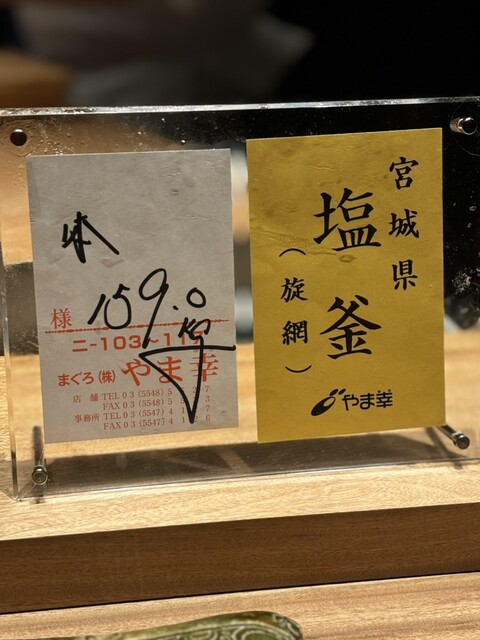 様 159.0
kg
ニ-103~11
まぐろ(株) やま幸
店舗 TEL 03(5548)5
FAX 03(5548)5
事務所 TEL 03(5547)4
FAX 03(5547)4
宮城県
塩釜
(旋網)
やま幸